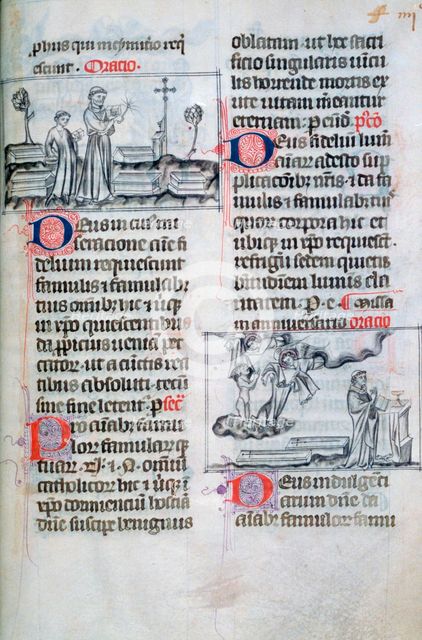 phus qui in req̄
escunt. Oracio.
Deus in cuius mi
seracione aīe fi
delium requiescunt
famulis et famulabꝫ
tuis omībꝫ hic et ubiqꝫ
in xp̄o quiescentibus
da propicius veniā pec
cator ut a cunctis rea
tibus absoluti tecū
sine fine letent. p sec̄
Pro aīabꝫ famu
lor famular qꝫ
tuar. N. et N. omniū
catholicor hic et ubiqꝫ in
xp̄o dormienciū hostiā
dn̄e suscipe benignus
oblatam. ut hec sacri
ficio singularis vincu
lis horrende mortis ex
ute vitam meantur
eternam. p eūd. p̄co
Deus fideliū lum̄
aīar adesto sup
plicacōibꝫ nr̄is et da fa
mulis et famulabꝫ tuis
quor corpora hic et
ubiqꝫ in xp̄o requiesct.
refrigii sedem quietis
btudinem luminis cla
ritatem. P. e. Missa
in anniversario oracio
Deus indulgenci
arum dn̄e da
aīabꝫ famulor famu